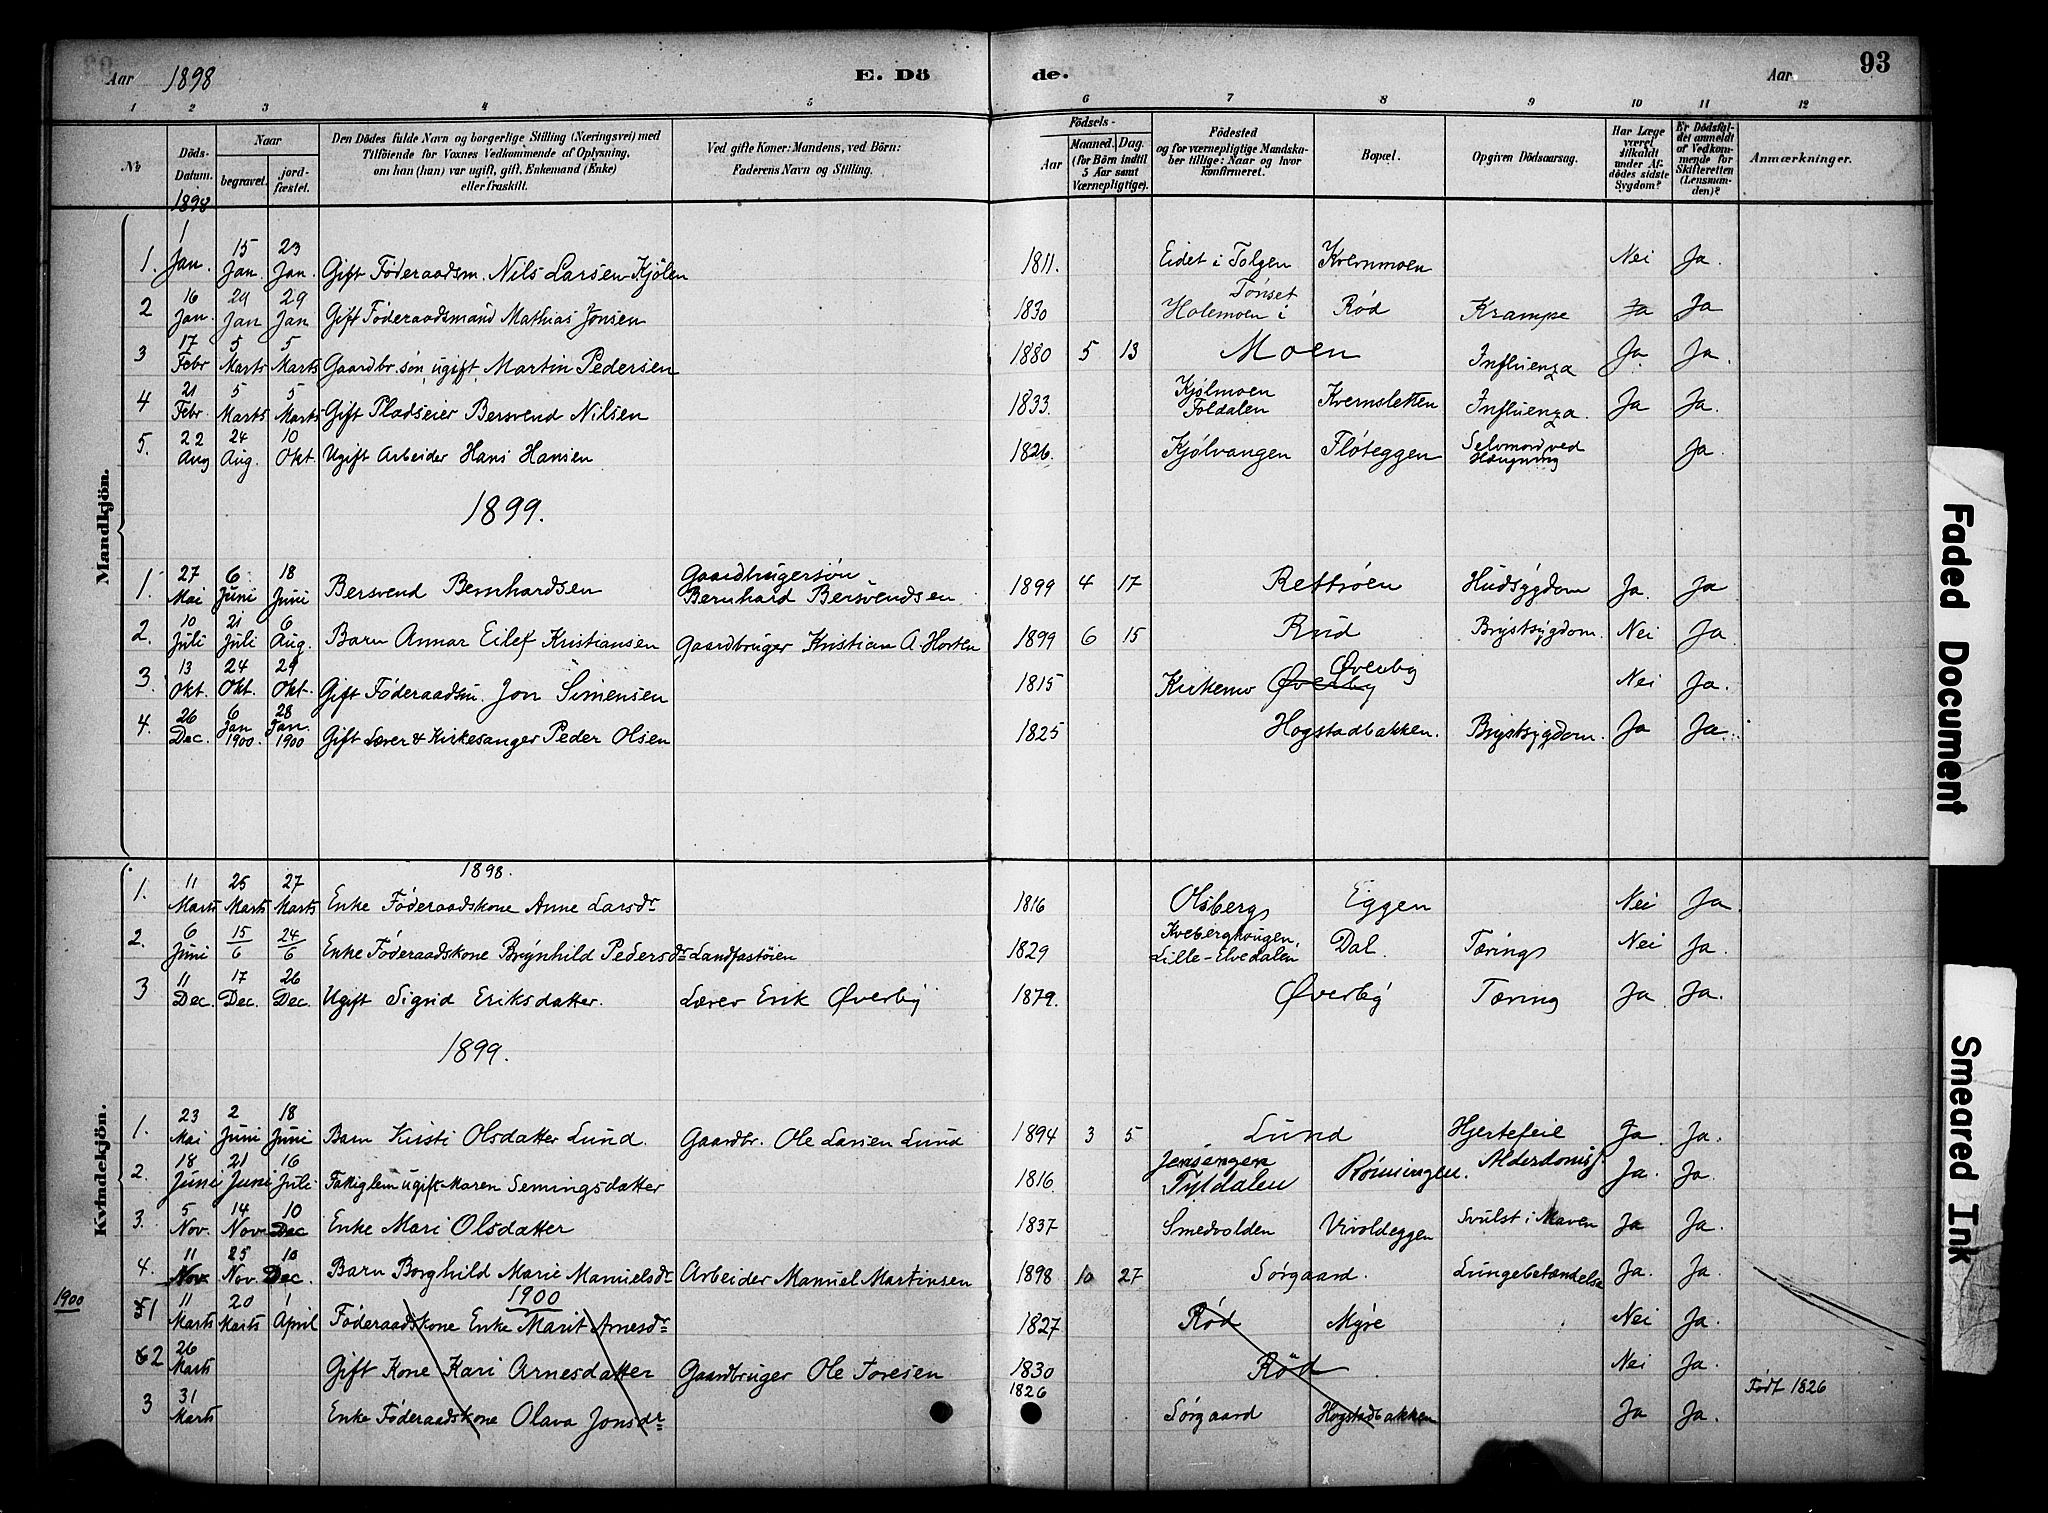 Aar 1898 E. Dö de. Aar 93
1 2 3 4 5 6 7 8 9 10 11 12
No
Döds-Datum.
Naar
begravet.
jord-fæstet.
Den Dödes fulde Navn og borgerlige Stilling (Næringsvei) med
Tilföiende for Voxnes Vedkommende af Oplysning,
om han (hun) var ugift, gift, Enkemand (Enke)
eller fraskilt.
Ved gifte Koner: Mandens, ved Börn:
Faderens Navn og Stilling.
Födsels-
Aar
Maaned. Dag.
(for Börn indtil
5 Aar samt
Værnepligtige).
Födested
og for værnepligtige Mandska-
ber tillige: Naar og hvor
konfirmeret.
Bopæl.
Opgiven Dödsaarsag.
Har Læge
været
tilkaldt
under Af-
dödes sidste
Sygdom?
Er Dödsfal-
det anmeldt
af Vedkom-
mende for
Skifteretten
(Lensman-
den)?
Anmærkninger.
Mandkjön.
1898
1. 1 Jan. 15 Jan. 23 Jan. Gift Føderaadsm. Nils Larsen Kjølen 1811. Eidet i Tolgen Kvernmoen Nei Ja.
2 16 Jan. 29 Jan 29 Jan Gift Føderaadsmand Mathias Jonsen 1830 Holemoen i Tönset Rød Krampe Ja Ja
3 17 Febr 5 Marts 5 Marts Gaardbr. søn, ugift, Martin Pedersen 1880 5 13 Moen Influenza Ja. Ja.
4 21 Febr. 5 Marts 5 Marts Gift Pladseier Bersvend Nilsen 1833. Kjølmoen Foldalen Kvernsletten Influenza. Ja Ja.
5. 22 Aug 24 Aug. 10 Okt. Ugift Arbeider Hans Hansen 1826. Kjølvangen Fløteggen Selvmord ved Hængning Ja.
1899.
1. 27 Mai 6 Juni 18 Juni Bersvend Bernhardsen Gaardbrugersøn Bernhard Bersvendsen. 1899 4 17 Rettrøen Hudsygdom Ja. Ja
2. 10 Juli 21 Juli 6 Aug. Barn Annar Eilef Kristiansen Gaardbruger Kristian A. Horten 1899 6 15 Rud Brystsygdom. Nei Ja
3. 13 Okt. 24 Okt. 29 Okt. Gift Føderaadsm Jon Simensen 1815 Kirkemo Øverby Øverby Nei Ja.
4. 26 Dec. 6 Jan 1900. 28 Jan. 1900 Gift Lærer & Kirkesanger Peder Olsen 1825 Hogstadbakken. Brystsygdom. Ja Ja.
Kvindekjön.
1898.
1. 11 Marts 25 Marts 27 Marts Enke Føderaadskone Anne Larsdr 1816 Olsbergs Eggen Nei Ja.
2. 6 Juni 15/6 24/6 Enke Føderaadskone Brynhild Pedersdr Landfastøien 1829 Kveberghaugen, Lille-Elvedalen Dal. Tærings Nei Ja.
3 11 Dec. 17 Dec. 26 Dec. Ugift Sigrid Eriksdatter. Lærer Erik Øverby 1879. Øverby Tæring Ja Ja.
1899.
1. 23 Mai 2 Juni 18 Juni Barn Kirsti Olsdatter Lund. Gaardbr. Ole Larsen Lund 1894 3 5 Lund Hjertefeil Ja. Ja.
2. 18 Juni 21 Juni 16 Juli Fattiglem ugift Maren Semingsdatter 1816 Jensengen Tyldalen Rønningen. Ja. Ja.
3. 5 Nov. 14 Nov. 10 Dec Enke Mari Olsdatter 1837 Smedvolden Vivoldeggen Svulst i Maven Ja Ja.
4. 11 Nov 25 Nov. 10 Dec. Barn Borghild Marie Manuelsdr Arbeider Manuel Martinsen 1898 10 27 Sørgaard. Lungebetændelse Ja. Ja.
1900
1900
1 11 Marts 20 Marts 1 April Føderaadskone Enke Marit Arnesdr 1827 Rød Myre Nei Ja.
2 26 Marts Gift Kone Kari Arnesdatter Gaardbruger Ole Toresen 1830 Rød Nei Ja.
3 31 Marts Enke Føderaadskone Olava Jonsdr 1826 Sørgaard Hogstadbakken Ja Ja. Født 1826
Faded Document
Smeared Ink